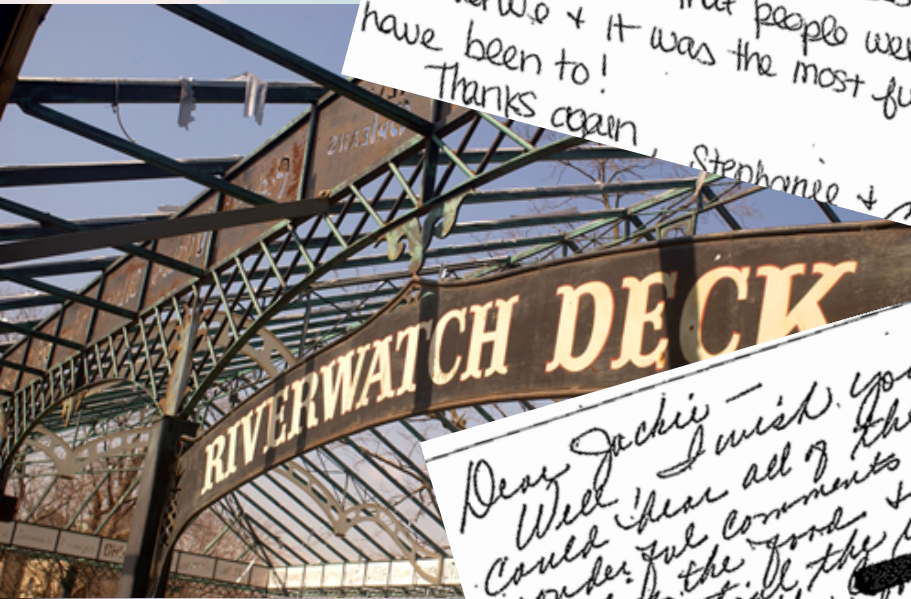 that people wer
& it was the most fu
have been to!
Thanks again
Stephanie &
RIVERWATCH DECK
Dear Jackie —
Well, I wish you
could hear all of the
wonderful comments
the food &
the